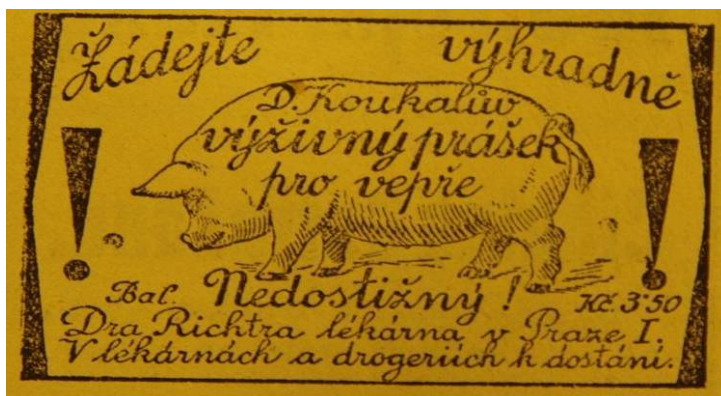 Žádejte výhradně
D. Koukalův
výživný prášek
pro vepře
! !
Bal. Nedostižný! Kč. 3'50
Dra Richtra lékárna v Praze I.
V lékárnách a drogeriích k dostání.